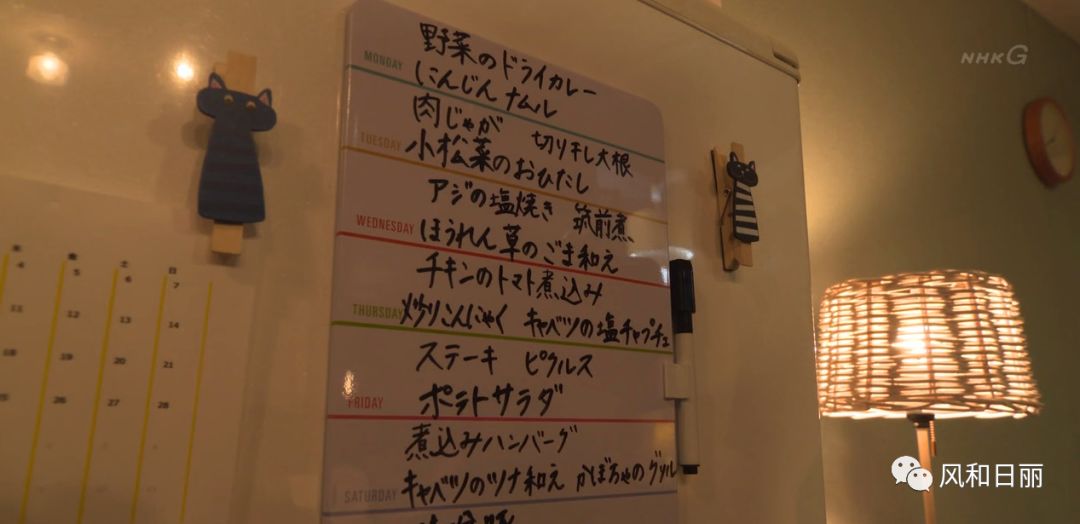 NHK G
MONDAY
野菜のドライカレー
にんじんナムル
TUESDAY
肉じゃが 切り干し大根
小松菜のおひたし
WEDNESDAY
アジの塩焼き 筑前煮
ほうれん草のごま和え
THURSDAY
チキンのトマト煮込み
炒りこんにゃく キャベツの塩チャプチェ
FRIDAY
ステーキ ピクルス
ポテトサラダ
SATURDAY
煮込みハンバーグ
キャベツのツナ和え かぼちゃのグリル
木 金 土 日
4 5 6 7
11 12 13 14
18 19 20 21
25 26 27 28
风和日丽